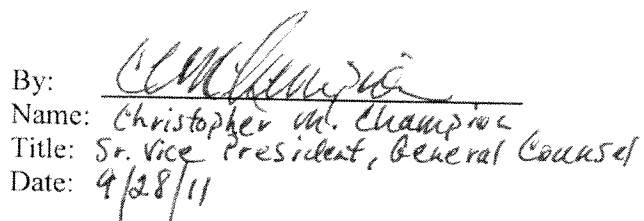 By: CM Champion
Name: Christopher M. Champion
Title: Sr. Vice President, General Counsel
Date: 9/28/11